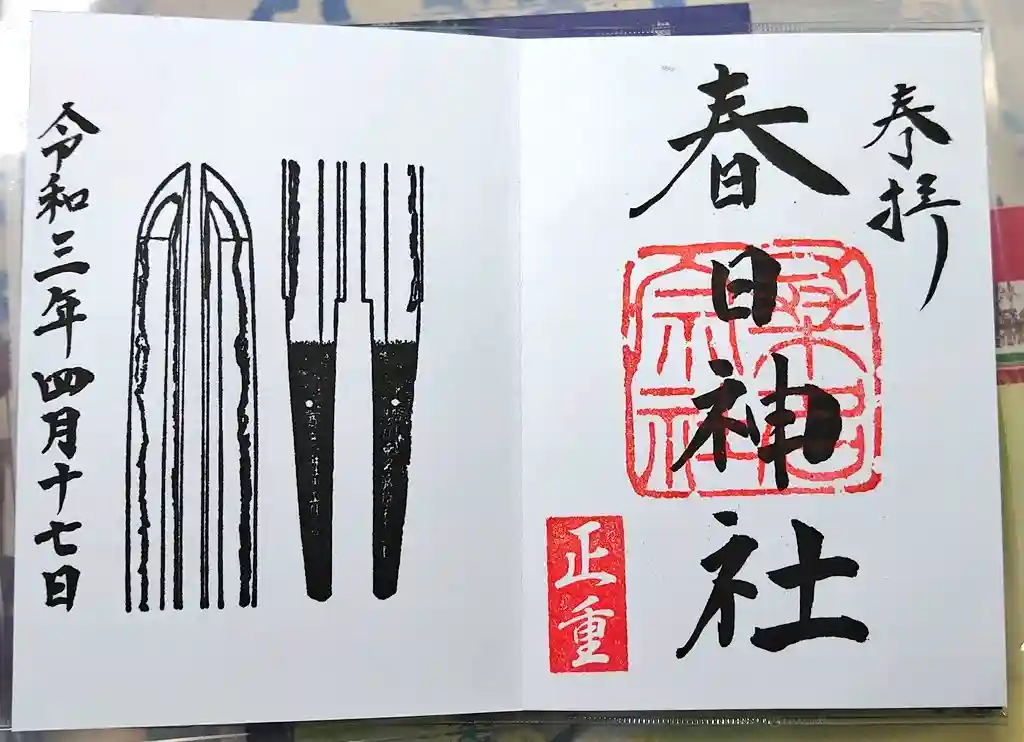 奉拝
春日神社
桑名宗社
正重
令和三年四月十七日